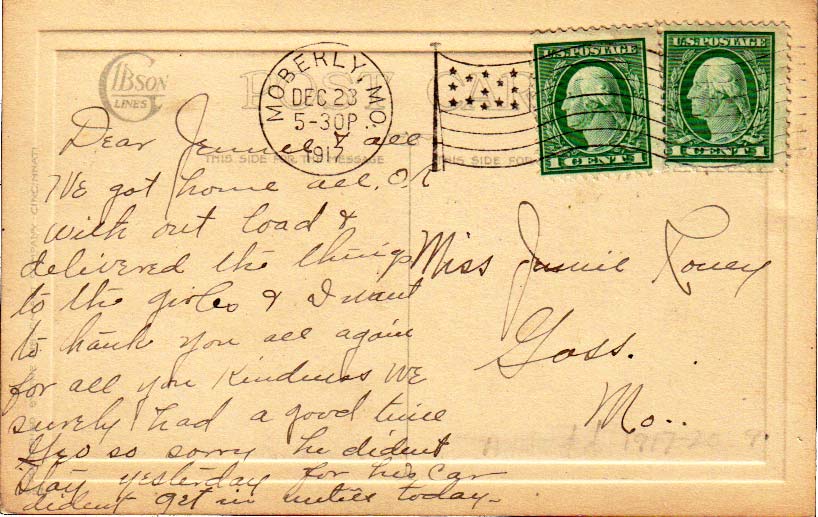 GIBSON
LINES
POST CARD
THIS SIDE FOR THE MESSAGE
THIS SIDE FOR
MOBERLY, MO.
DEC 23
5-30P
1917
U.S. POSTAGE
1 CENT 1
U.S. POSTAGE
1 CENT 1
Dear Jennie & all
We got home all, OK
with out load &
delivered the things
to the girles & I want
to thank you all again
for all you Kindness We
surely had a good time
Geo so sorry he dident
stay yesterday for his car
dident get in untill today-
Miss Jennie Roney
Goss.
Mo..
1917-20